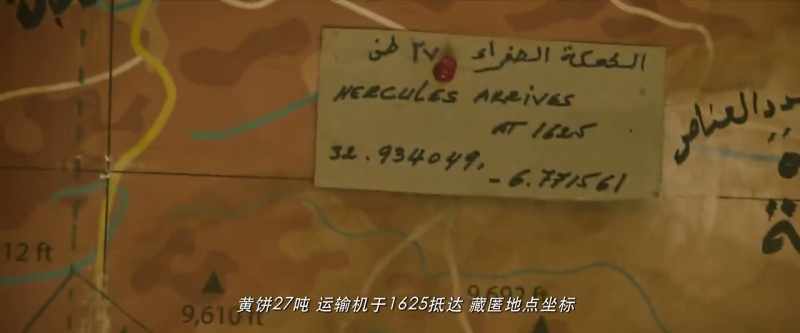 الكعكة الصفراء ٢٧ طن
HERCULES ARRIVES
AT 1625
32.934049,
-6.771561
12 ft
9,610 ft
9,692 ft
黄饼27吨 运输机于1625抵达 藏匿地点坐标